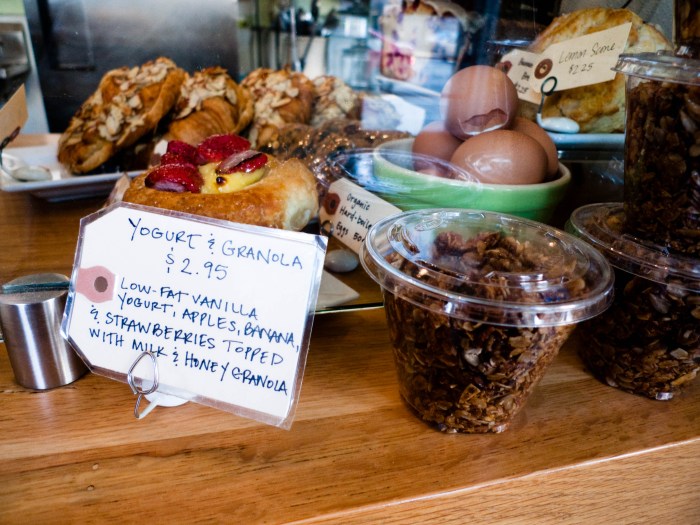 YOGURT & GRANOLA
$2.95
LOW-FAT VANILLA
YOGURT, APPLES, BANANA,
& STRAWBERRIES TOPPED
WITH MILK & HONEY GRANOLA
Organic
Hard-boiled
Eggs
Lemon Scone
$2.25
Banana